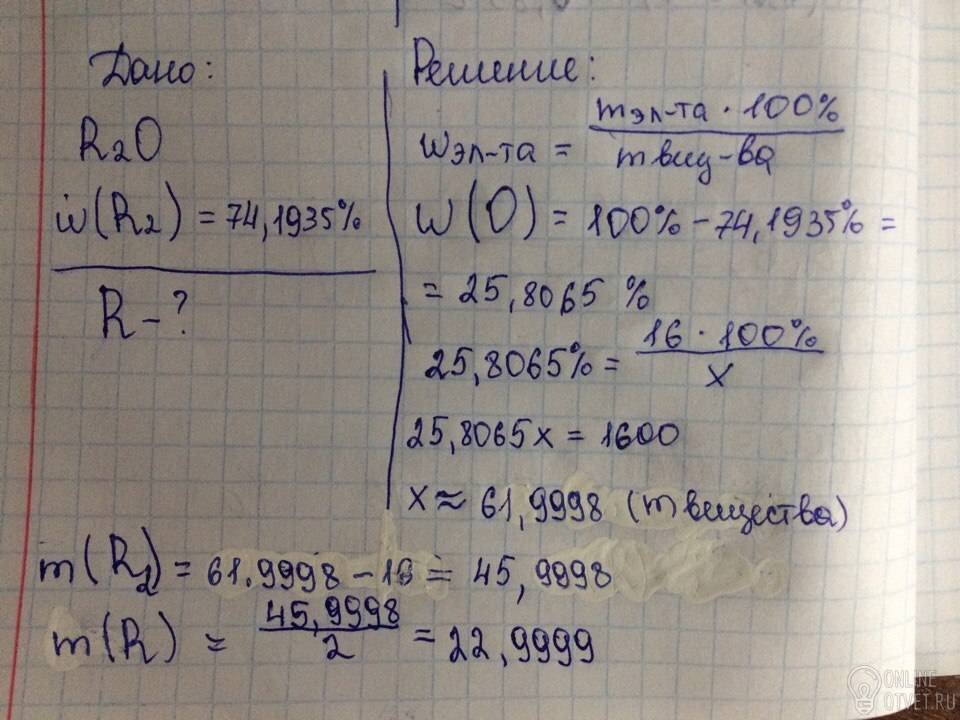 Дано:
R₂O
w(R₂) = 74,1935%
R - ?
Решение:
wэл-та = mэл-та · 100% / mвещ-ва
w(O) = 100% - 74,1935% =
= 25,8065 %
25,8065% = 16 · 100% / x
25,8065x = 1600
x ≈ 61,9998 (m вещества)
m(R₂) = 61.9998 - 16 = 45,9998
m(R) ≈ 45,9998 / 2 = 22,9999
ONLINE
OTVET.RU